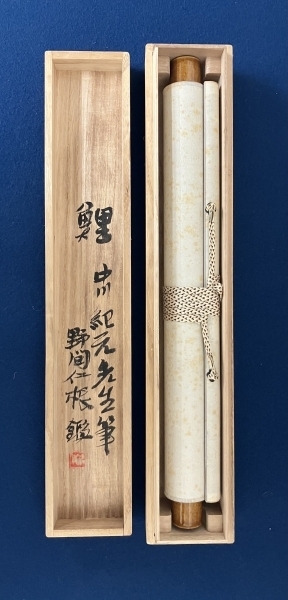 鯉
中川紀元先生筆
野間仁根鑑